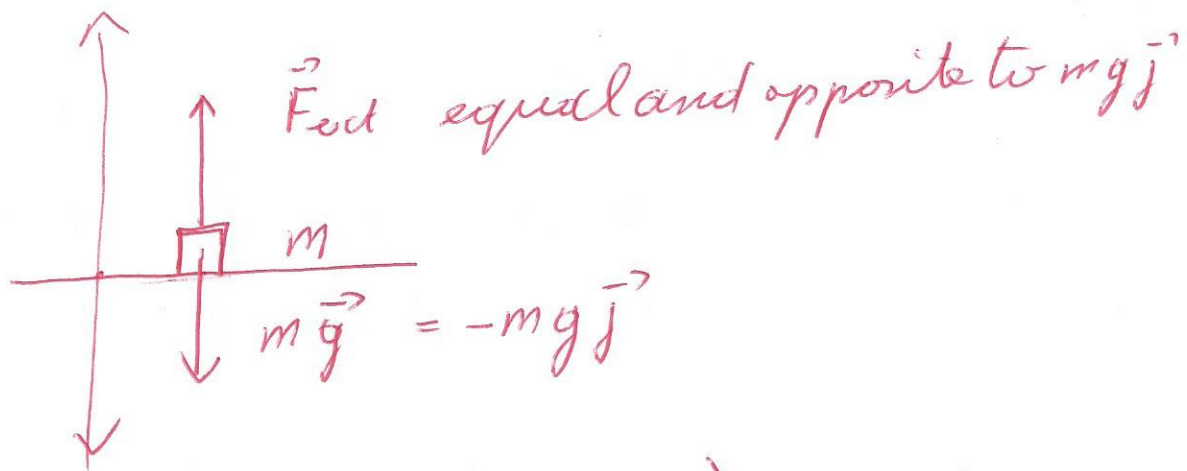 F⃗ext equal and opposite to mgj⃗
m
mg⃗ = -mgj⃗